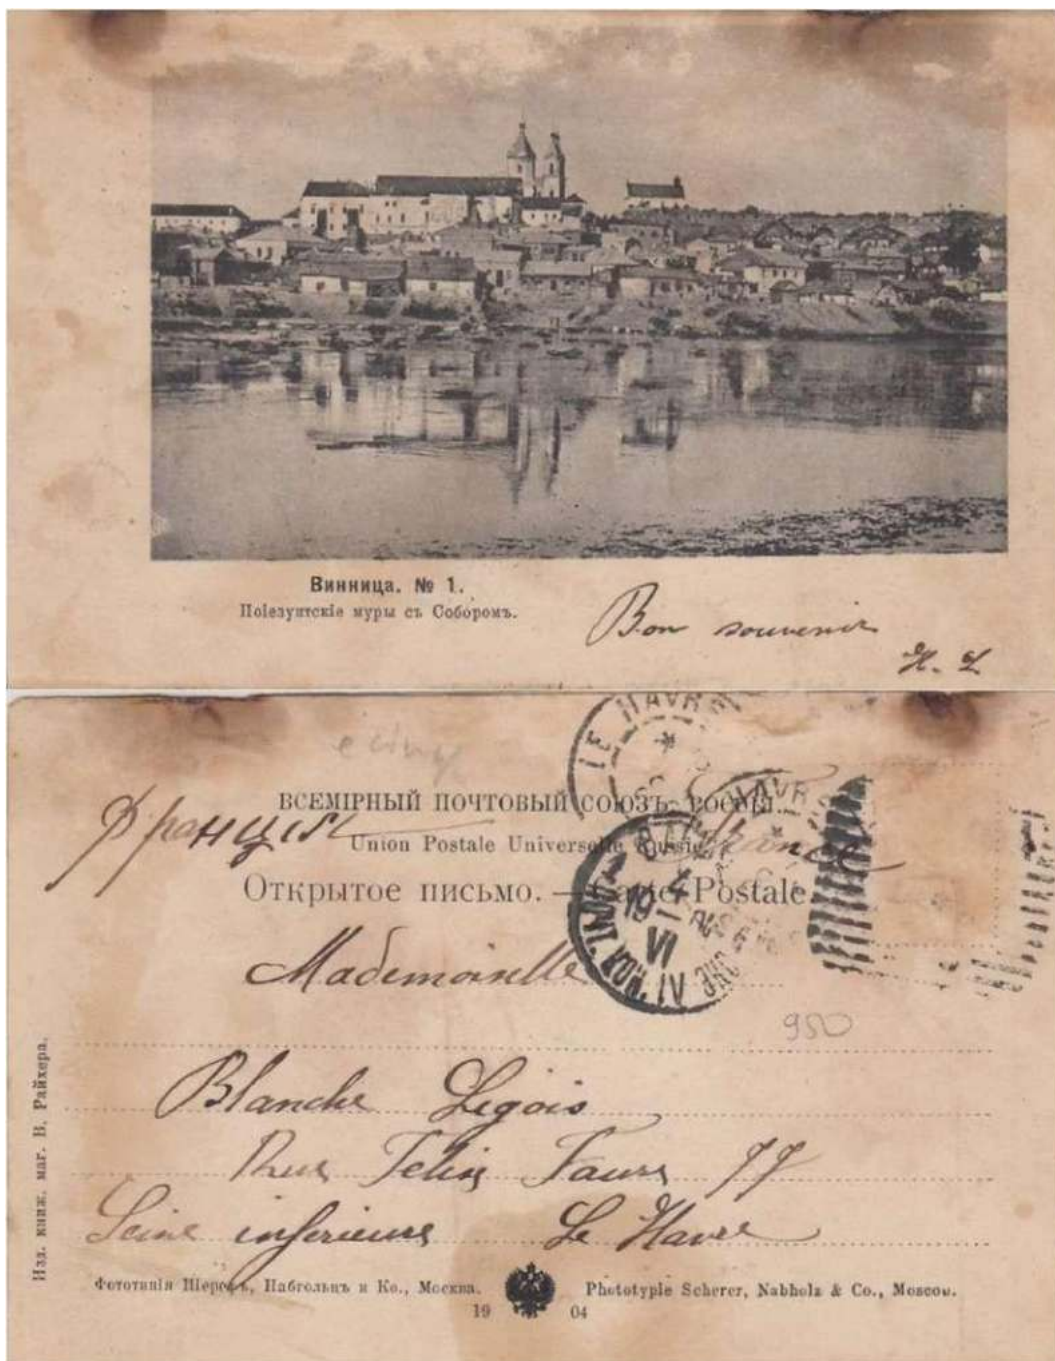 Винница. № 1.
Поіезуитскіе муры съ Соборомъ.
Bon souvenir
H. L
ВСЕМІРНЫЙ ПОЧТОВЫЙ СОЮЗЪ. РОССІЯ.
Франція France
Union Postale Universelle Russie.
Открытое письмо. — Carte Postale
LE HAVRE
HAVRE
19 4
VI
Mademoiselle
950
Blanche Legois
Rue Felix Faure 77
Seine inferieure Le Havre
Изд. книж. маг. В. Райхера.
Фототипія Шереръ, Набгольцъ и Ко., Москва. Phototypie Scherer, Nabholz & Co., Moscow.
19 04